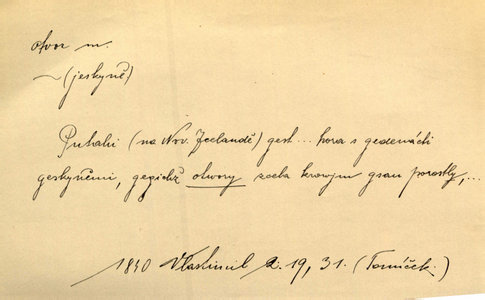 otvor m.
~ (jeskyně)
Puhahi (na Nov. Zeelandě) gest ... hora s gedenácti
geskyněmi, gegichž otwory zcela krowjm gsau porostly, ...
1840 Vlastimil 2. 19, 31. (Tomíček.)